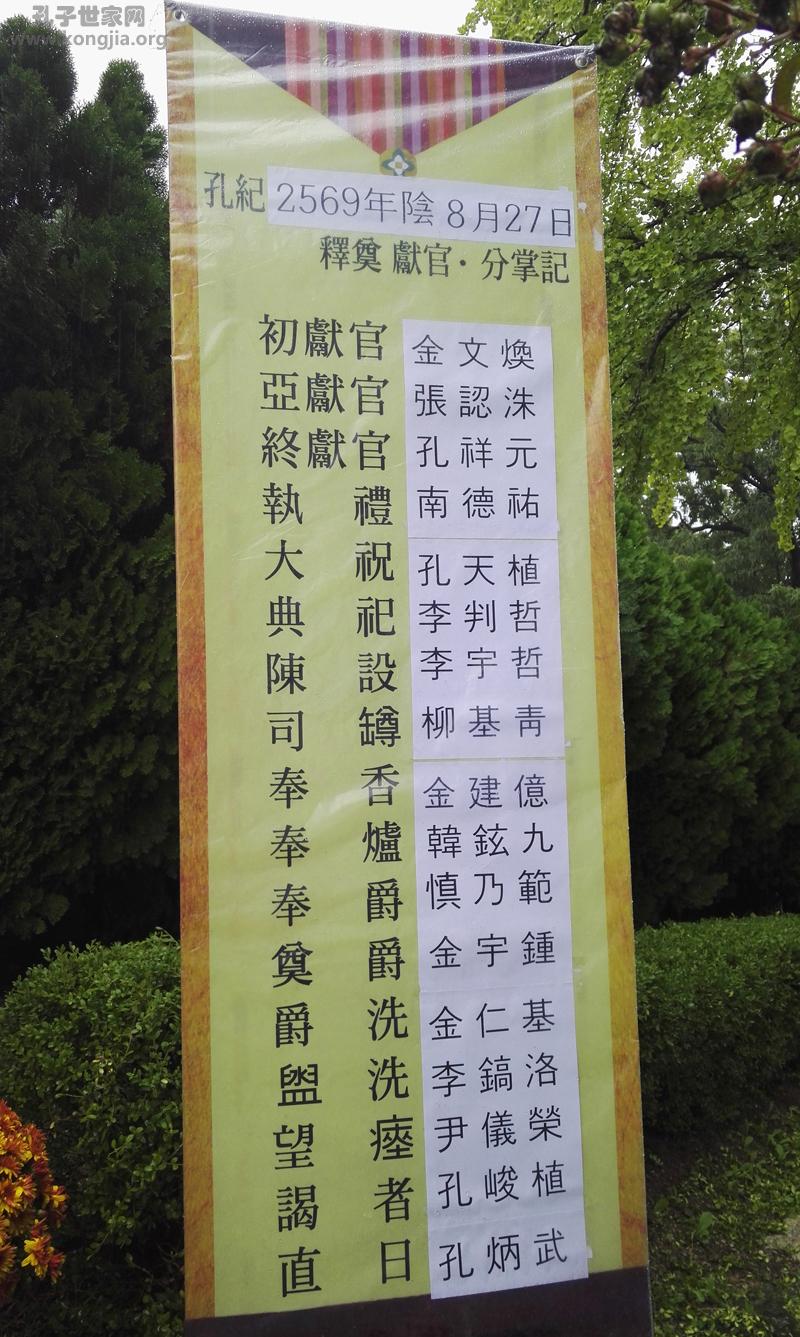 孔子世家网
www.kongjia.org
孔紀 2569年陰 8月27日
釋奠 獻官·分掌記
初獻官 金文煥
亞獻官 張認洙
終獻官 孔祥元
執禮 南德祐
大祝 孔天植
典祀 李判哲
陳設 李宇哲
司罇 柳基靑
奉香 金建億
奉爐 韓鉉九
奉爵 慎乃範
奠爵 金宇鍾
爵洗 金仁基
盥洗 李鎬洛
望瘞 尹儀榮
謁者 孔峻植
直日 孔炳武